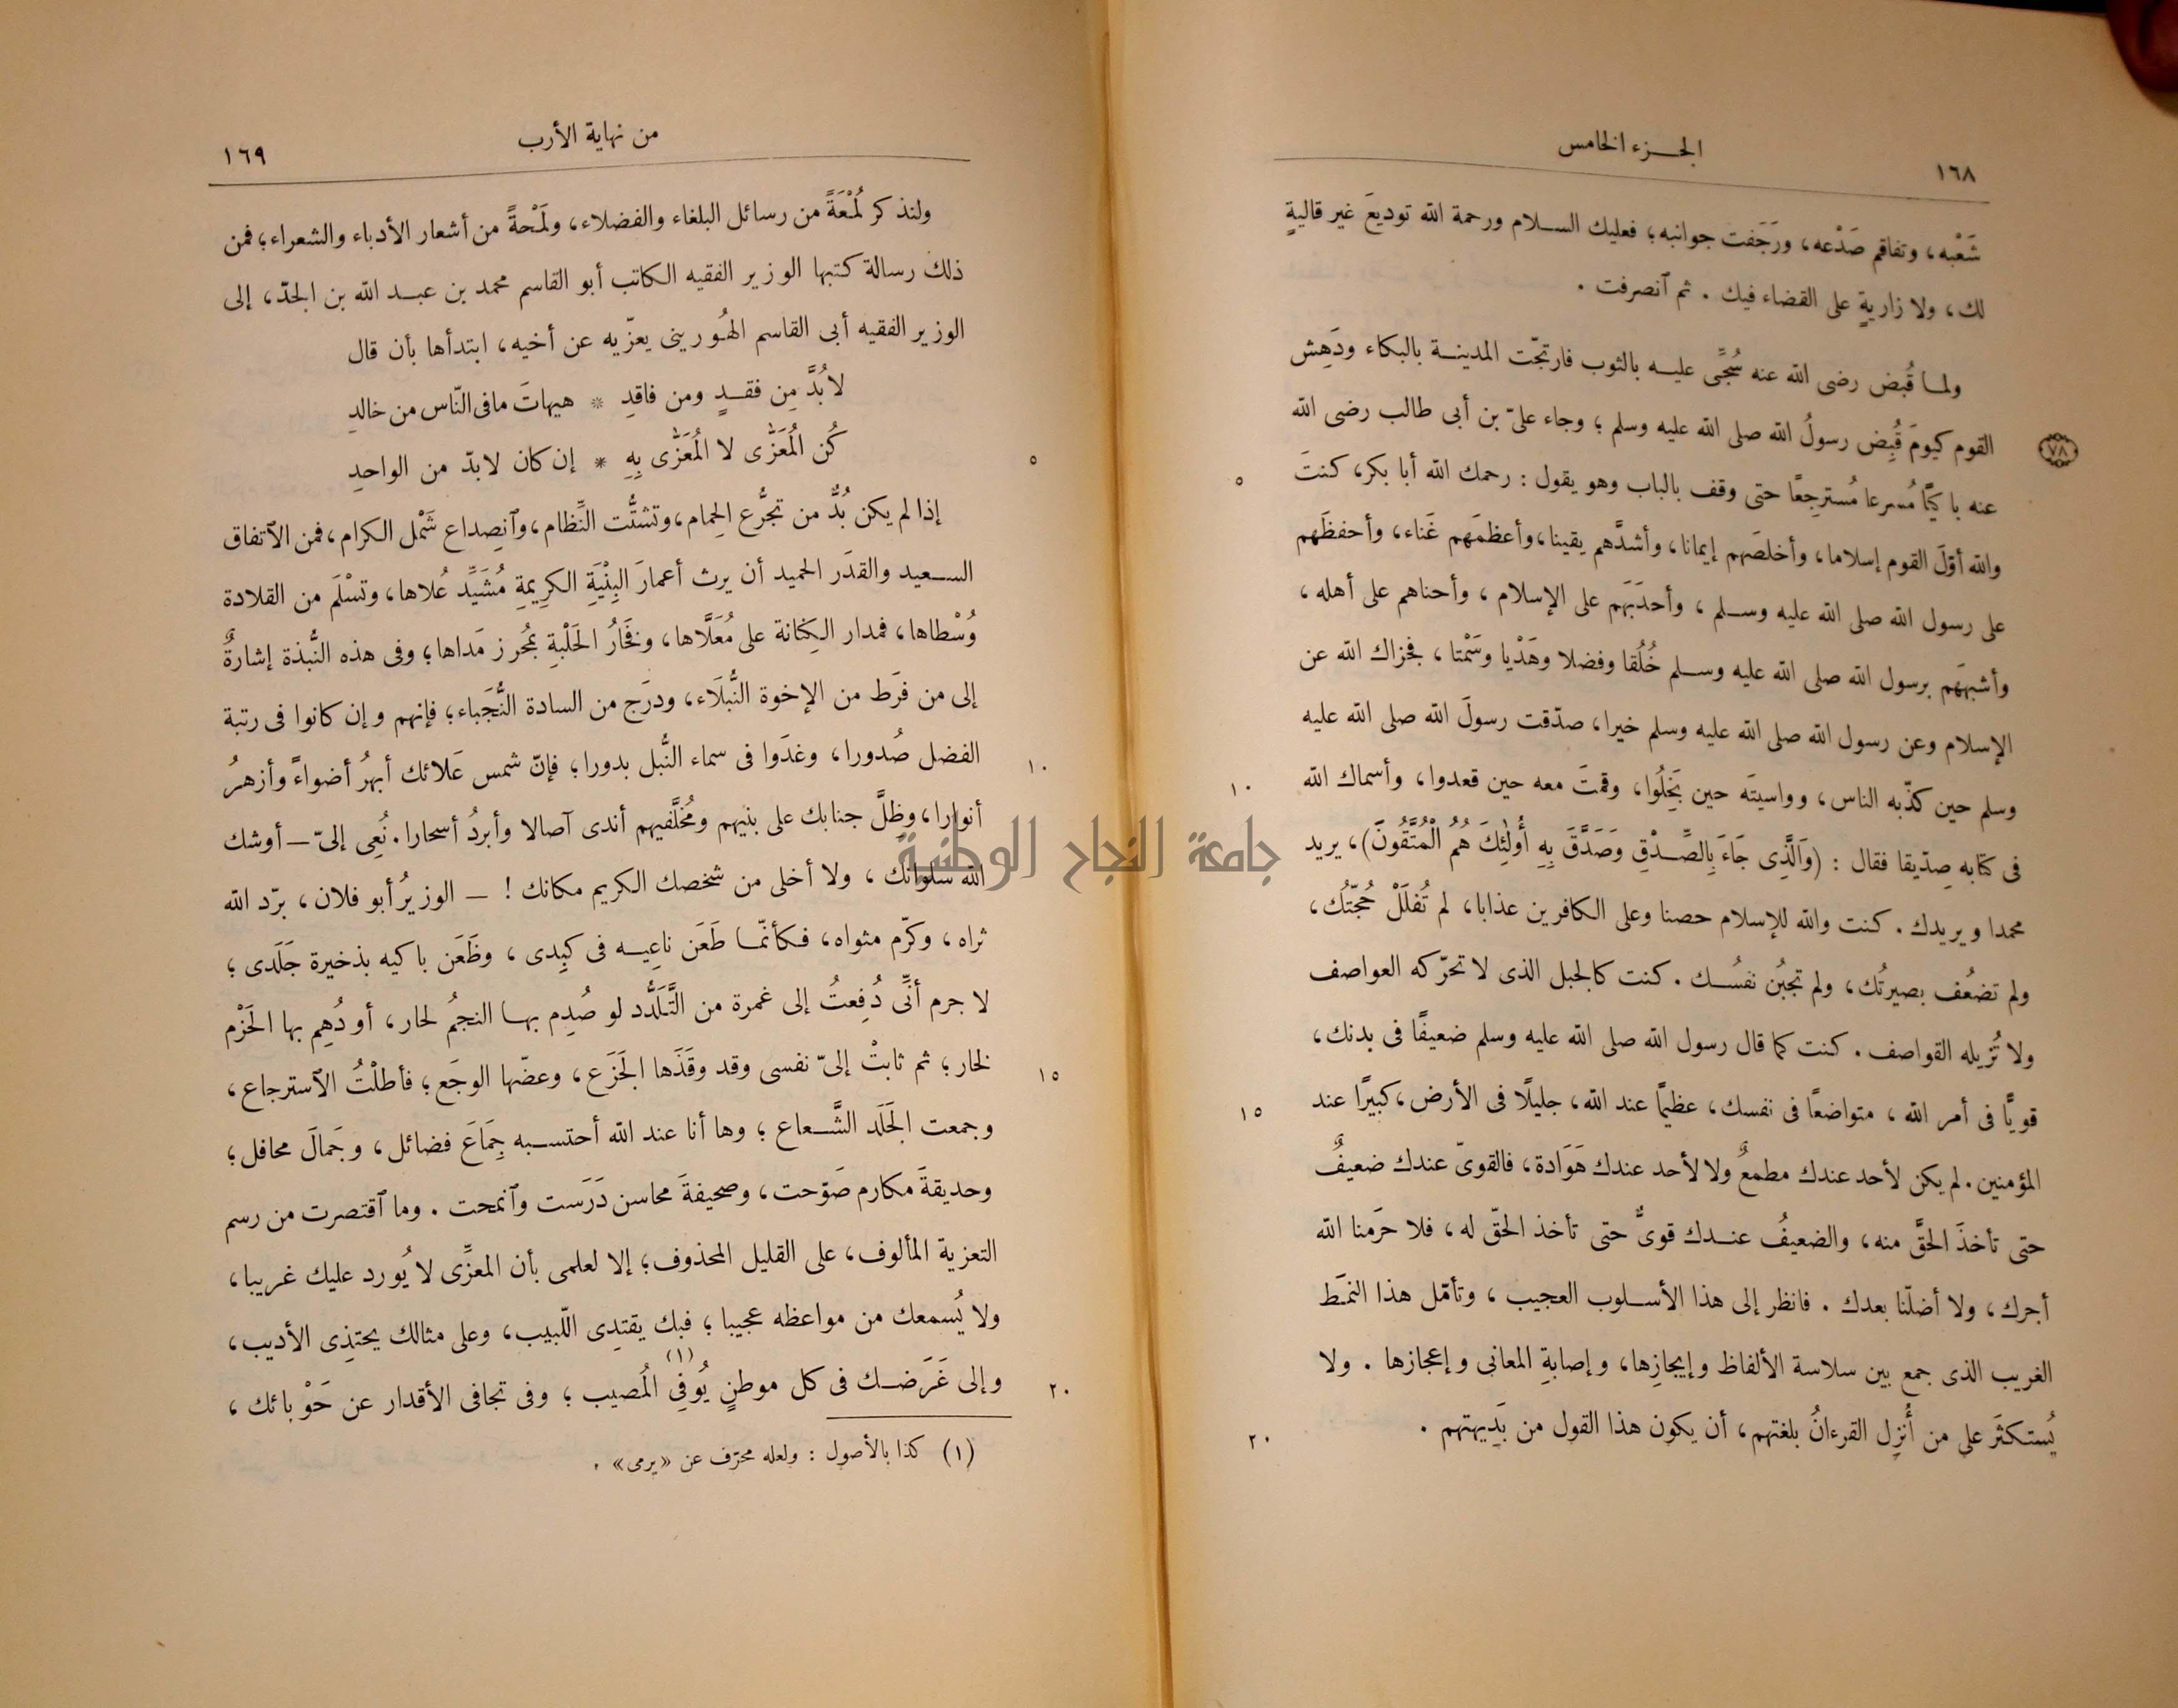 ١٦٨
الجزء الخامس
شَعْبه، وتفاقم صَدْعه، ورَجَفت جوانبه؛ فعليك السلام ورحمة الله توديعَ غير قاليةٍ
لك، ولا زاريةٍ على القضاء فيك . ثم ٱنصرفت .
ولما قُبض رضى الله عنه سُجِّىَ عليه بالثوب فارتجّت المدينة بالبكاء ودَهِش
القوم كيومَ قُبِض رسولُ الله صلى الله عليه وسلم ؛ وجاء علىّ بن أبى طالب رضى الله
٧٨
عنه باكيًا مُسرعا مُسترجِعًا حتى وقف بالباب وهو يقول : رحمك الله أبا بكر، كنتَ
٥
والله أوّلَ القوم إسلاما، وأخلصَهم إيمانا، وأشدَّهم يقينا، وأعظمَهم غَناء، وأحفظَهم
على رسول الله صلى الله عليه وسلم ، وأحدَبَهَم على الإسلام ، وأحناهم على أهله ،
وأشبهَهم برسول الله صلى الله عليه وسلم خُلُقا وفضلا وهَدْيا وسَمْتا ، فجزاك الله عن
الإسلام وعن رسول الله صلى الله عليه وسلم خيرا، صدّقت رسولَ الله صلى الله عليه
وسلم حين كذّبه الناس، وواسيتَه حين بَخِلُوا، وقمتَ معه حين قعدوا، وأسماك الله
١٠
فى كتابه صِدّيقا فقال : (وَالَّذِى جَاءَ بِالصِّدْقِ وَصَدَّقَ بِهِ أُولَئِكَ هُمُ الْمُتَّقُونَ)، يريد
محمدا ويريدك . كنت والله للإسلام حصنا وعلى الكافرين عذابا، لم تُفلَلْ حُجّتُك،
ولم تضعُف بصيرتُك، ولم تجبُن نفسُك . كنت كالجبل الذى لا تحرّكه العواصف
ولا تُزيله القواصف . كنت كما قال رسول الله صلى الله عليه وسلم ضعيفًا فى بدنك،
قويًّا فى أمر الله ، متواضعًا فى نفسك، عظيمًا عند الله، جليلًا فى الأرض، كبيرًا عند
١٥
المؤمنين . لم يكن لأحد عندك مطمعٌ ولا لأحد عندك هَوَادة، فالقوىّ عندك ضعيفٌ
حتى تأخذَ الحقَّ منه، والضعيفُ عندك قوىٌّ حتى تأخذ الحقّ له، فلا حَرَمنا الله
أجرك، ولا أضلّنا بعدك . فانظر إلى هذا الأسلوب العجيب ، وتأمّل هذا النمَط
الغريب الذى جمع بين سلاسة الألفاظ وإيجازِها، وإصابةِ المعانى وإعجازها . ولا
يُستكثَر على من أُنزِل القرءانُ بلغتهم، أن يكون هذا القول من بَدِيهتهم .
٢٠
من نهاية الأرب
١٦٩
ولنذكر لُمْعَةً من رسائل البلغاء والفضلاء، ولَمْحةً من أشعار الأدباء والشعراء؛ فمن
ذلك رسالة كتبها الوزير الفقيه الكاتب أبو القاسم محمد بن عبد الله بن الجدّ، إلى
الوزير الفقيه أبى القاسم الهُورينى يعزّيه عن أخيه، ابتدأها بأن قال
لابُدَّ مِن فقدٍ ومن فاقدِ * هيهاتَ مافى النّاس من خالدِ
كُن المُعَزّى لا المُعَزَّى بِهِ * إن كان لابدّ من الواحدِ
٥
إذا لم يكن بُدٌّ من تجرُّع الحِمام، وتشتُّت النِّظام، وٱنصِداع شَمْل الكرام، فمن الٱتفاق
السعيد والقدَر الحميد أن يرث أعمارَ البِنْيَةِ الكرِيمةِ مُشَيِّد عُلاها، وتسْلَم من القلادة
وُسْطاها، فمدار الكِنانة على مُعَلَّاها، وفَخَارُ الحَلْبةِ بمُحرِز مَداها؛ وفى هذه النُّبذة إشارةٌ
إلى من فرَط من الإخوة النُّبَلَاء، ودرَج من السادة النُّجَباء؛ فإنهم وإن كانوا فى رتبة
الفضل صُدورا، وغدَوا فى سماء النُّبل بدورا؛ فإنّ شمس عَلائك أبهرُ أضواءً وأزهرُ
١٠
أنوارا، وظلَّ جنابك على بنيهم ومُخلَّفيهم أندى آصالا وأبردُ أسحارا . نُعِى إلىّ — أوشك
الله سلوانك ، ولا أخلى من شخصك الكريم مكانك ! — الوزيرُ أبو فلان، برّد الله
ثراه، وكرّم مثواه، فكأنّما طَعَن ناعِيه فى كبِدى ، وظَعَن باكيه بذخيرة جَلَدى ؛
لا جرم أنِّى دُفِعتُ إلى غمرة من التَّلَدُّد لو صُدِم بها النجمُ لحار، أو دُهِم بها الحَزْم
لخار؛ ثم ثابتْ إلىّ نفسى وقد وقَذَها الجَزَع، وعضّها الوجَع؛ فأطلْتُ الٱسترجاع،
١٥
وجمعت الجَلَد الشَّعاع ؛ وها أنا عند الله أحتسبه جِمَاعَ فضائل، وجَمالَ محافل؛
وحديقةَ مكارم صَوّحت، وصحيفةَ محاسن دَرَست وٱنمحت . وما ٱقتصرت من رسم
التعزية المألوف، على القليل المحذوف؛ إلا لعلمى بأن المعزِّى لا يُورد عليك غريبا،
ولا يُسمعك من مواعظه عجيبا ؛ فبك يقتدِى اللّبيب، وعلى مثالك يحتذِى الأديب،
وإلى غَرَضك فى كل موطنٍ يُوفِى (١) المُصيب ؛ وفى تجافى الأقدار عن حَوْبائك ،
٢٠
(١) كذا بالأصول : ولعله محرّف عن «يرمى» .
جامعة النجاح الوطنية